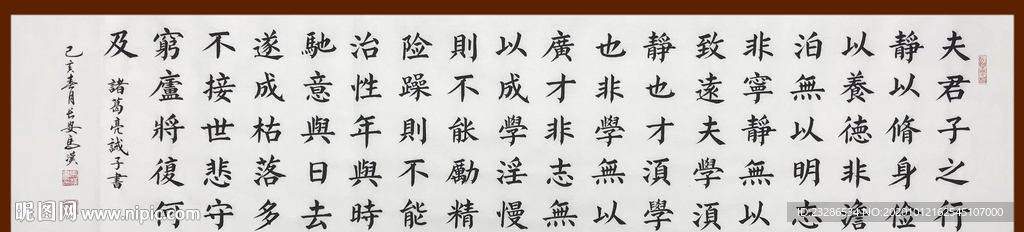 夫君子之行
静以脩身俭
以養德非澹
泊無以明志
非寧静無以
致遠夫學湏
静也才湏學
也非學無以
廣才非志無
以成學淫慢
則不能勵精
险躁則不能
治性年與時
馳意與日去
遂成枯落多
不接世悲守
窮廬將復何
及 諸葛亮誡子書
己亥春月长安
昵图网 www.nipic.com
ID:23286534 NO:20201012162545107000